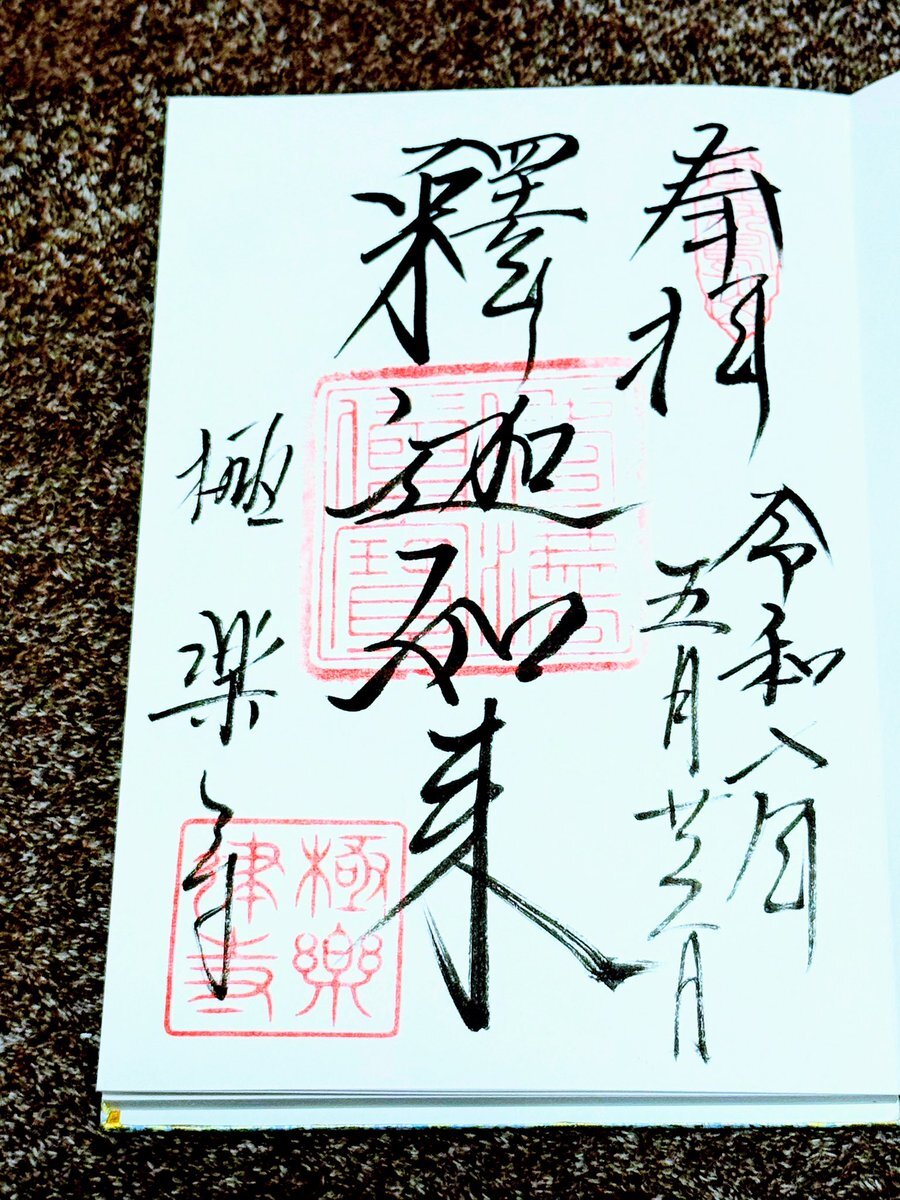 奉拝
令和
年
五月廿
日
釋迦如来
極楽寺
極樂
律寺